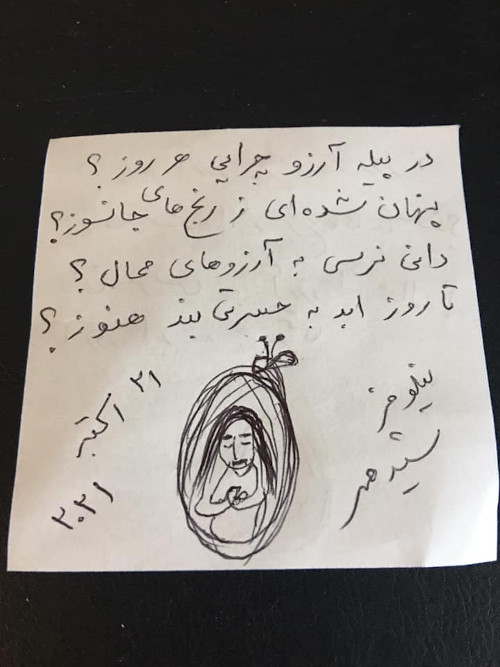 در پیله آرزو چرایی هر روز؟
پنهان شده‌ای ز رنج‌های جانسوز؟
دانی نرسی به آرزوهای محال؟
تا روز ابد به حسرتی بند هنوز؟
نیلوفر
شیدمهر
۲۱ اکتبر
۲۰۲۱